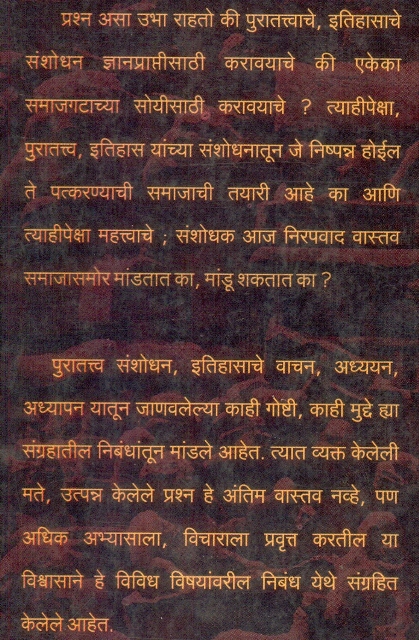 प्रश्न असा उभा राहतो की पुरातत्त्वाचे, इतिहासाचे
संशोधन ज्ञानप्राप्तीसाठी करावयाचे की एकेका
समाजगटाच्या सोयीसाठी करावयाचे ? त्याहीपेक्षा,
पुरातत्त्व, इतिहास यांच्या संशोधनातून जे निष्पन्न होईल
ते पत्करण्याची समाजाची तयारी आहे का आणि
त्याहीपेक्षा महत्त्वाचे ; संशोधक आज निरपवाद वास्तव
समाजासमोर मांडतात का, मांडू शकतात का ?
पुरातत्त्व संशोधन, इतिहासाचे वाचन, अध्ययन,
अध्यापन यातून जाणवलेल्या काही गोष्टी, काही मुद्दे ह्या
संग्रहातील निबंधांतून मांडले आहेत. त्यात व्यक्त केलेली
मते, उत्पन्न केलेले प्रश्न हे अंतिम वास्तव नव्हे, पण
अधिक अभ्यासाला, विचाराला प्रवृत्त करतील या
विश्वासाने हे विविध विषयांवरील निबंध येथे संग्रहित
केलेले आहेत.